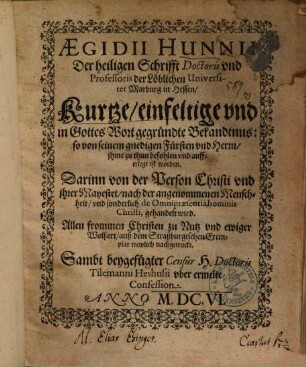 ÆGIDII HUNNII
Der heiligen Schrifft Doctoris vnd
Professoris der Löblichen Universi-
tet Marburg in Hessen/
Kurtze/einfeltige vnd
in Gottes Wort gegründte Bekandtnus:
so von seinem gnedigen Fürsten vnd Herrn/
jhme zu thun befohlen vnd auff-
erlegt ist worden.
Darinn von der Person Christi vnd
jhrer Mayestet/nach der angenommenen Mensch-
heit/ vnd sonderlich de Omnipræsentia hominis
Christi, gehandelt wird.
Allen frommen Christen zu Nutz vnd ewiger
Wolfart/auß dem Straßburgischen Exem-
plar trewlich nachgetruckt.
Sambt beygefügter Censur H. Doctoris
Tilemanni Heshusii vber ermelte
Confession.
ANNO M. DC. VI.
M. Elias Ehinger.